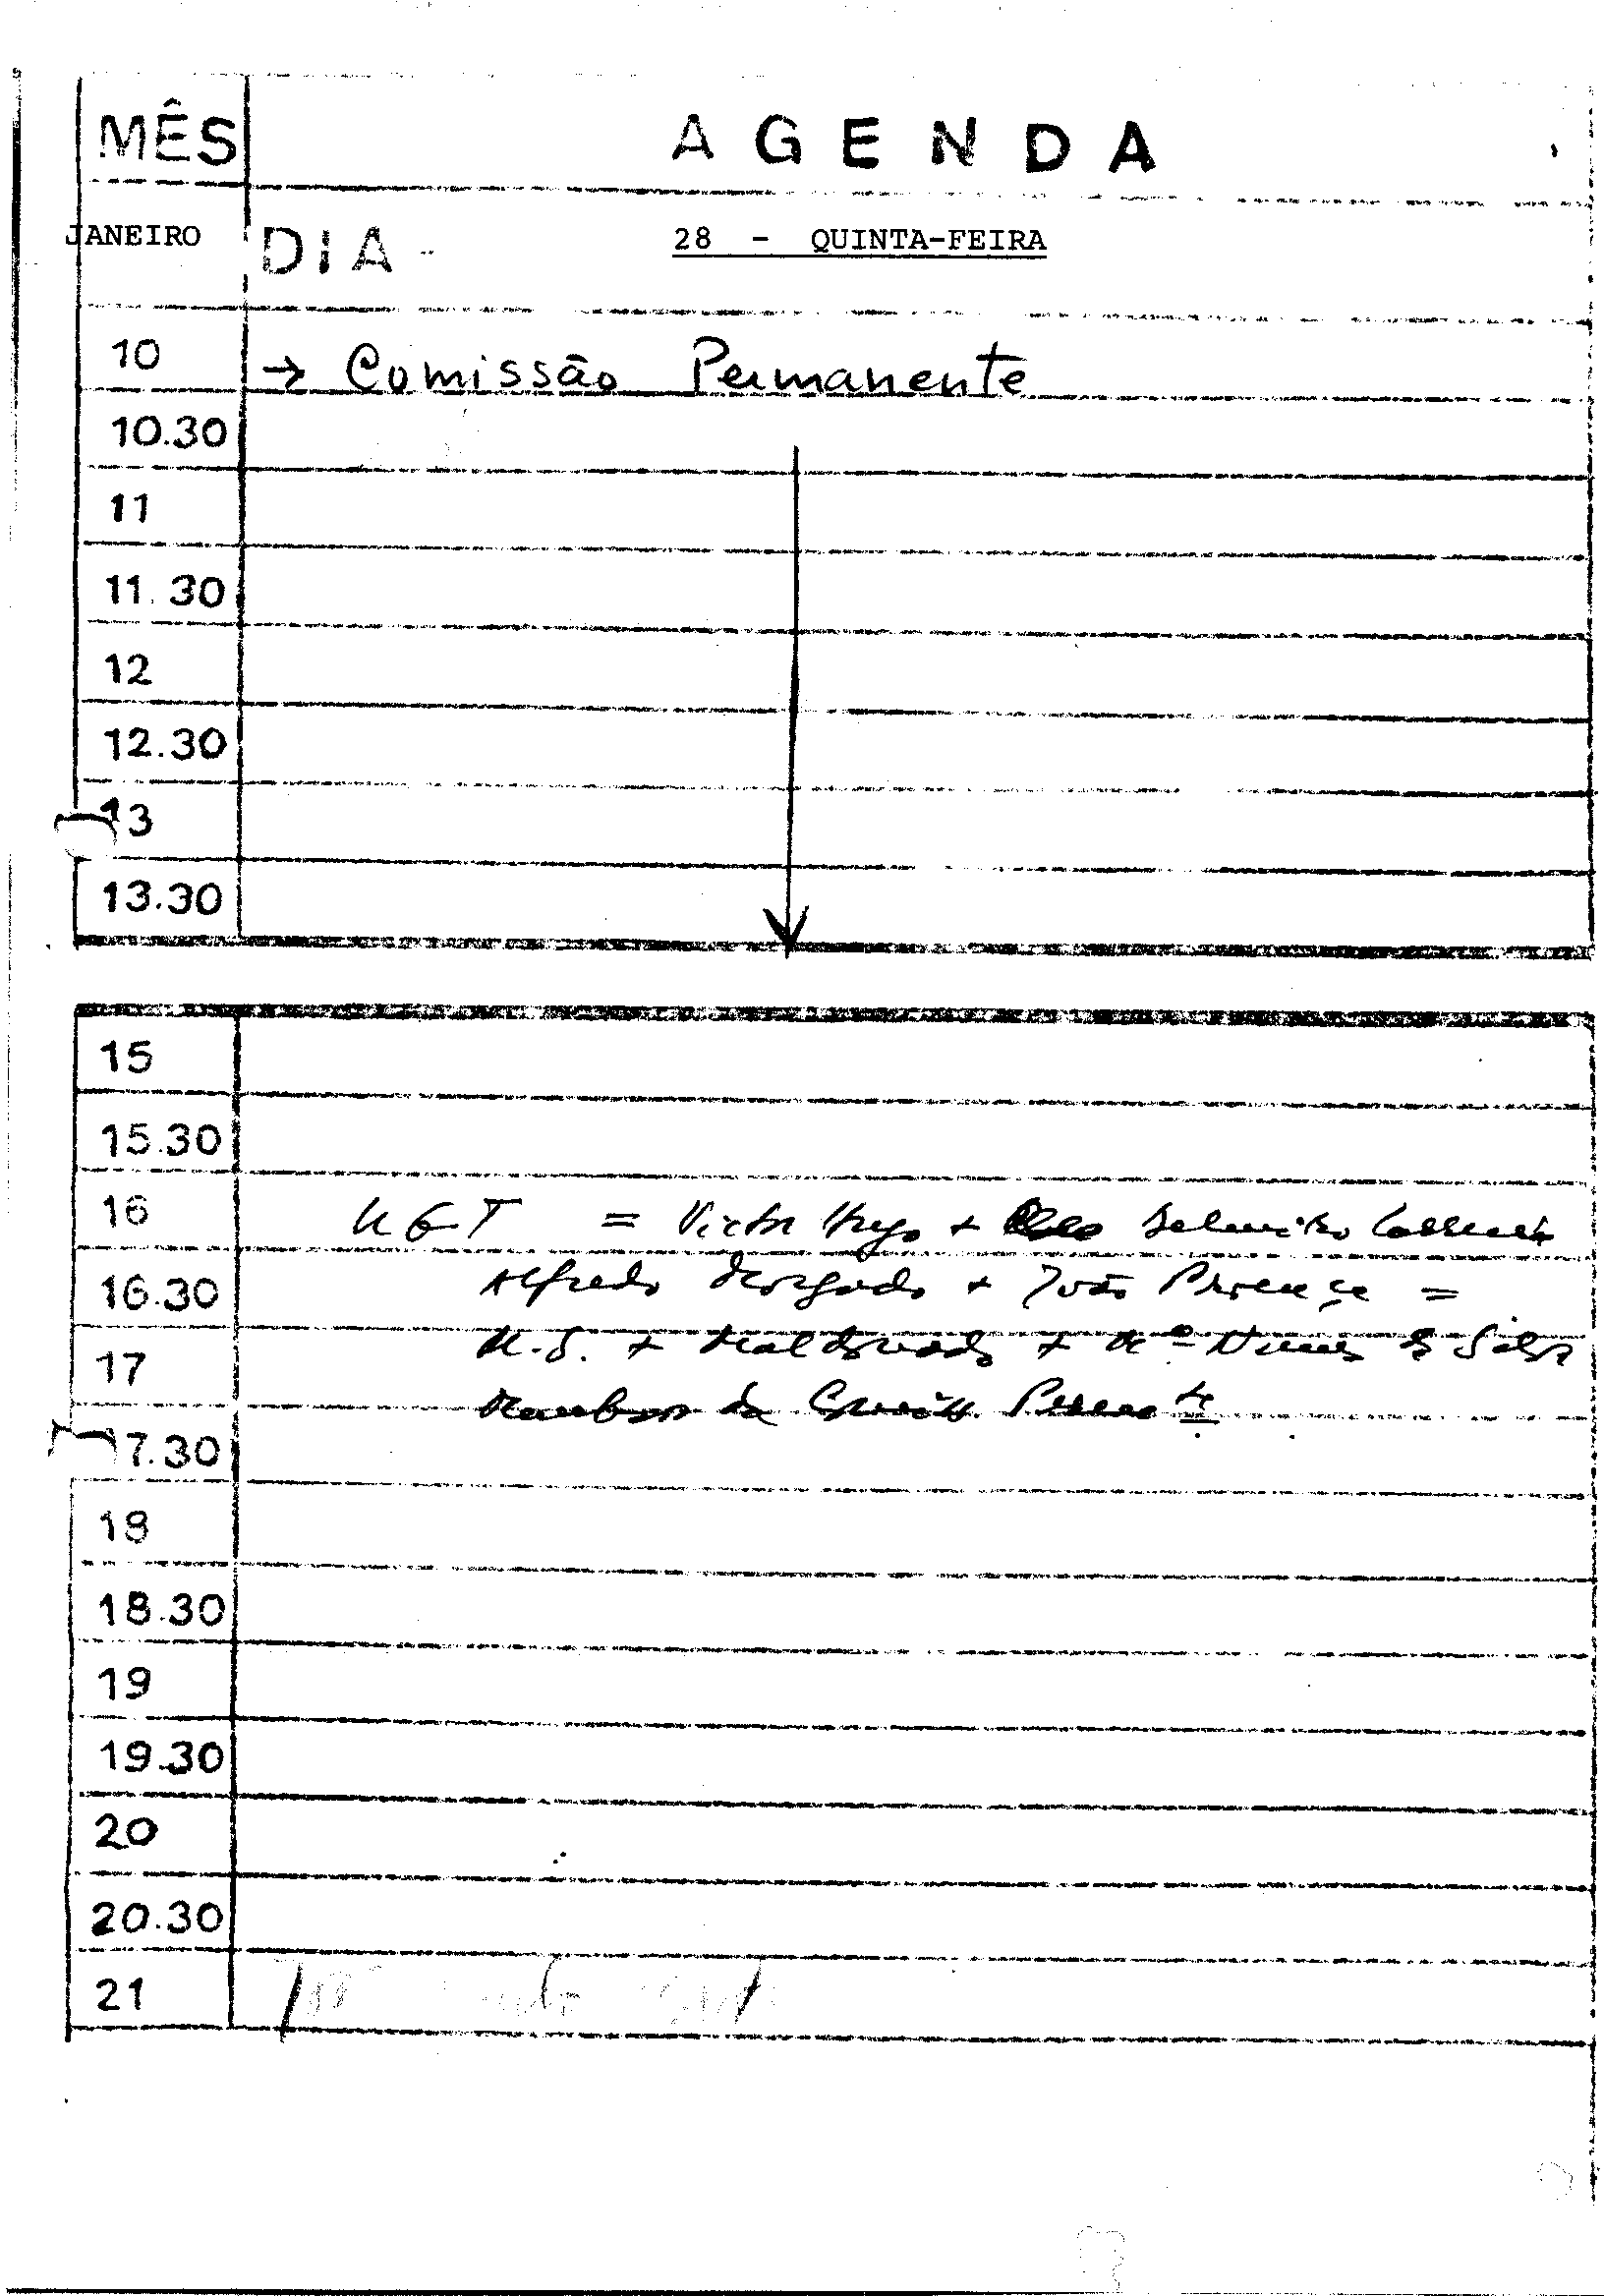 MÊS AGENDA
JANEIRO DIA - 28 - QUINTA-FEIRA
10 → Comissão Permanente
10.30
11
11.30
12
12.30
13
13.30
15
15.30
16 UGT = Victor Hugo + Belmiro
16.30 Alfredo Morgado + João Proença =
17 M.S. + Maldonado +
da
17.30
18
18.30
19
19.30
20
20.30
21